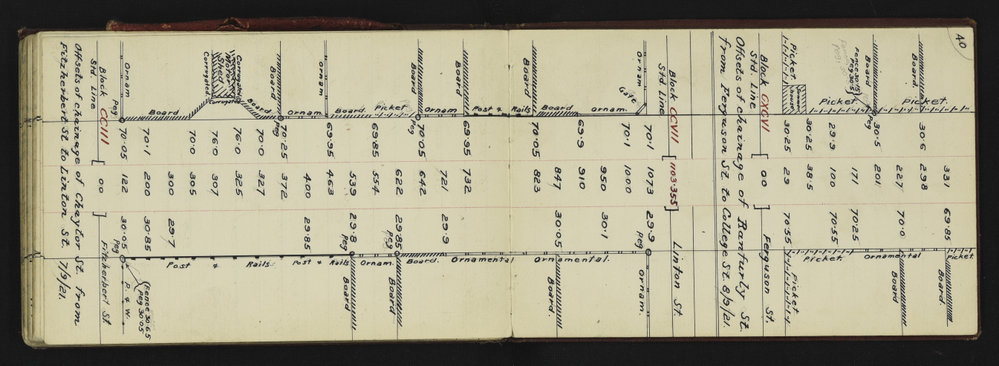 40
331 69.85
Board Picket Board. Picket
30.6 298
227 70.0
Board Fence 30.15 Peg 30.5 Peg
30.5 201
Ornamental Board
171 70.25
Picket
29.9 100 70.55
House
30.25 38.5
Picket Picket
30.25 29 70.55
Picket
Std. Line Block CXVI [ 00 ] Ferguson St.
Offsets of chainage of Ranfurly St.
from Ferguson St. to College St 8/9/21.
Block CCVI [1103.355] Linton St.
Std Line
Ornam Ornam.
70.1 1073 29.9 Peg
Gate
70.1 1000
950 30.1
Ornam. Ornamental.
69.9 910
847 30.05
Board
Board Board.
70.05 823
Post & Rails Ornamental
69.95 732
Board
721 29.9
Ornam
Board Peg 70.05 642
Board.
622 29.85 Peg
Picket Board
69.85 554
Ornam.
539 29.8 Peg
Board. Board
69.95 463
Ornam Post & Rails
400 29.85
Ornam
Board Peg 70.25 372
Board
70.0 327
Corrugated
76.0 325
Motor Shed
Corrugated
76.0 307
Corrugated
70.0 305
300 29.7
Board Post & Rails
70.1 200 30.85
Ornam Peg 70.05 122 30.05 Peg
Fence 30.65
Peg 30.05
P. & W.
Block CCIII [ 00 ] Fitzherbert St
Std Line
Offsets of chainage of Chaytor St. from
Fitzherbert St. to Linton St. 7/9/21.